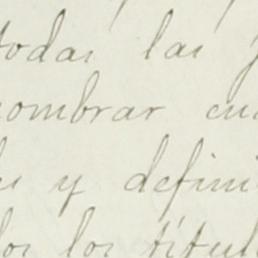 todas las
nombrar
y defini
los los títul